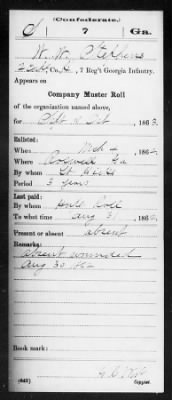 (Confederate.)
S 7 Ga.
W. W. Stephens
Co. , 7 Reg't Georgia Infantry.
Appears on
Company Muster Roll
of the organization named above,
for Sept & Oct , 186
Enlisted:
When Mch 4 , 186
Where Roswell Ga
By whom Lt
Period 3 years
Last paid:
By whom
To what time Aug 31 , 186
Present or absent absent
Remarks:
absent wounded
Aug 30
Book mark:
(642)
Copyist.